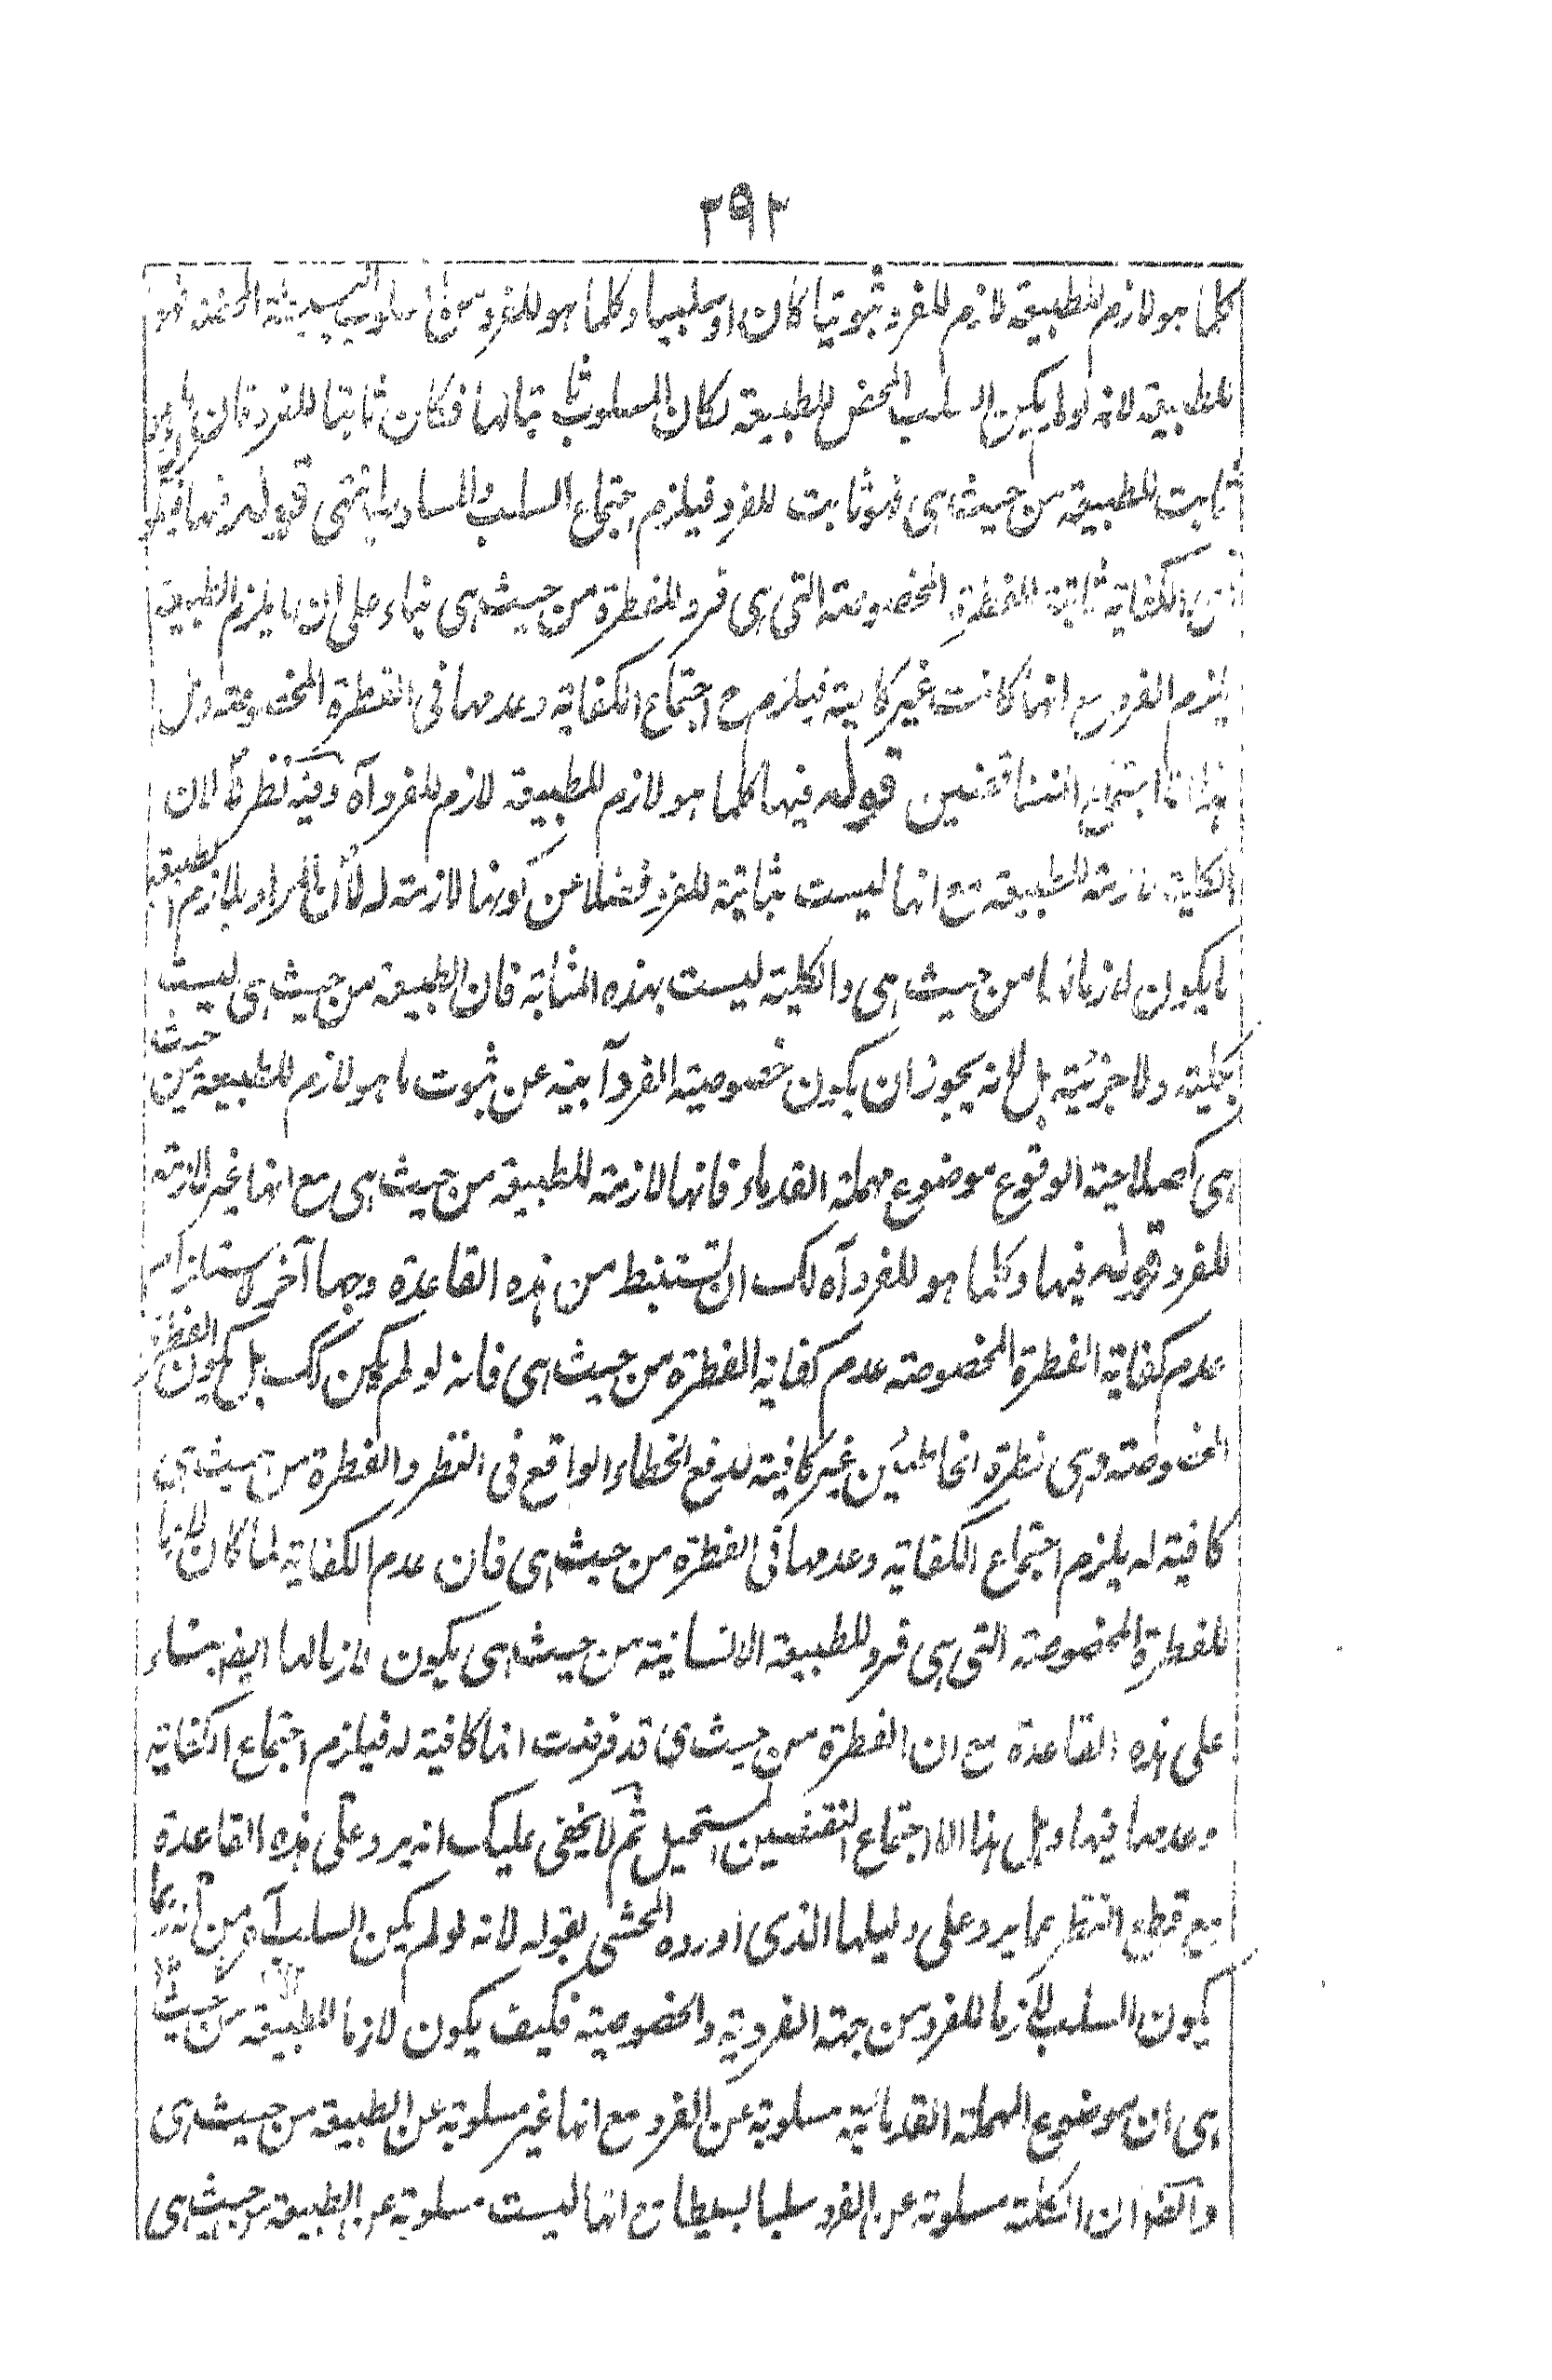 ٢٩٢
كلما هو لازم للطبيعة لازم للفرد ثبوتيا كان او سلبيا وكلما هو للفرد من السلوب البسيطة المحضة فهو
للطبيعة لانه لو لم يكن السلب المحض للطبيعة لكان المسلوب ثابتا لها فكان ثابتا للفرد فان ما هو
ثابت للطبيعة من حيث هى فهو ثابت للفرد فيلزم اجتماع السلب والمسلوب انتهى قوله فيها فيكون
الكفاية ثابتة للفطرة المخصوصة التى هى فرد للفطرة من حيث هى بناء على ان ما يلزم الطبيعة
يلزم الفرد مع انها كانت غير كافية فيلزم ح اجتماع الكفاية وعدمها فى الفطرة المخصوصة وهل
هذا الا اجتماع المتناقضين قوله فيها كلما هو لازم للطبيعة لازم للفرد آه وفيه نظر لا لان
الكلية لازمة للطبيعة مع انها ليست بثابتة للفرد فضلا عن كونها لازمة له لان المراد بلازم الطبيعة
ما يكون لازما لها من حيث هى والكلية ليست بهذه المثابة فان الطبيعة من حيث هى ليست
بكلية ولا جزئية بل لانه يجوز ان يكون خصوصية الفرد آبية عن ثبوت ما هو لازم للطبيعة من حيث
هى كصلاحية الوقوع موضوع مهملة القدماء فانها لازمة للطبيعة من حيث هى مع انها غير لازمة
للفرد قوله فيها وكلما هو للفرد آه لك ان تستنبط من هذه القاعدة وجها آخر لاستلزام
عدم كفاية الفطرة المخصوصة عدم كفاية الفطرة من حيث هى فانه لو لم يكن كك بل يكون الفطرة
المخصوصة وهى فطرة الخاطئين غير كافية لدفع الخطاء الواقع فى النظر والفطرة من حيث هى
كافية له يلزم اجتماع الكفاية وعدمها فى الفطرة من حيث هى فان عدم الكفاية لما كان لازما
للفطرة المخصوصة التى هى فرد للطبيعة الانسانية من حيث هى يكون لازما لها ايضا بناء
على هذه القاعدة مع ان الفطرة من حيث هى قد فرضت انها كافية له فيلزم اجتماع الكفاية
وعدمها فيها وهل هذا الا اجتماع النقيضين المستحيل ثم لا يخفى عليك انه يرد على هذه القاعدة
مع قطع النظر عما يرد على دليلها الذى اورده المحشى بقوله لانه لو لم يكن السلب آه من انه ربما
يكون السلب لازما للفرد من جهة الفردية والخصوصية فكيف يكون لازما للطبيعة من حيث
هى ان موضوع المهملة القدمائية مسلوبة عن الفرد مع انها غير مسلوبة عن الطبيعة من حيث هى
وايضا ان الكلية مسلوبة عن الفرد سلبا بسيطا مع انها ليست مسلوبة عن الطبيعة من حيث هى